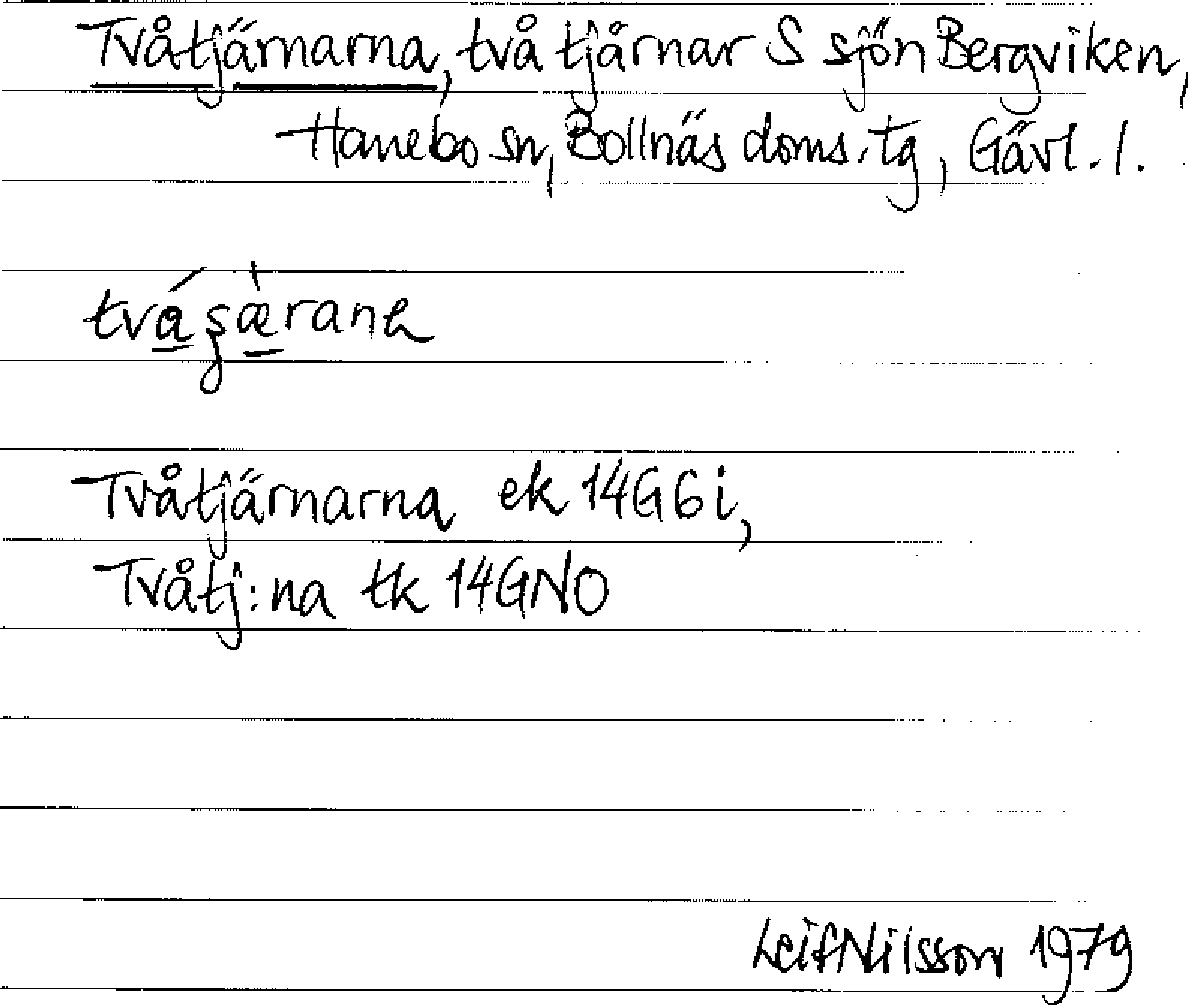 Tvåtjärnarna, två tjärnar S sjön Bergviken,
Hanebo sn, Bollnäs doms. tg, Gävl. l.
Tvåtjärnarna ek 14G6i,
Tvåtj:na tk 14GNO
Leif Nilsson 1979